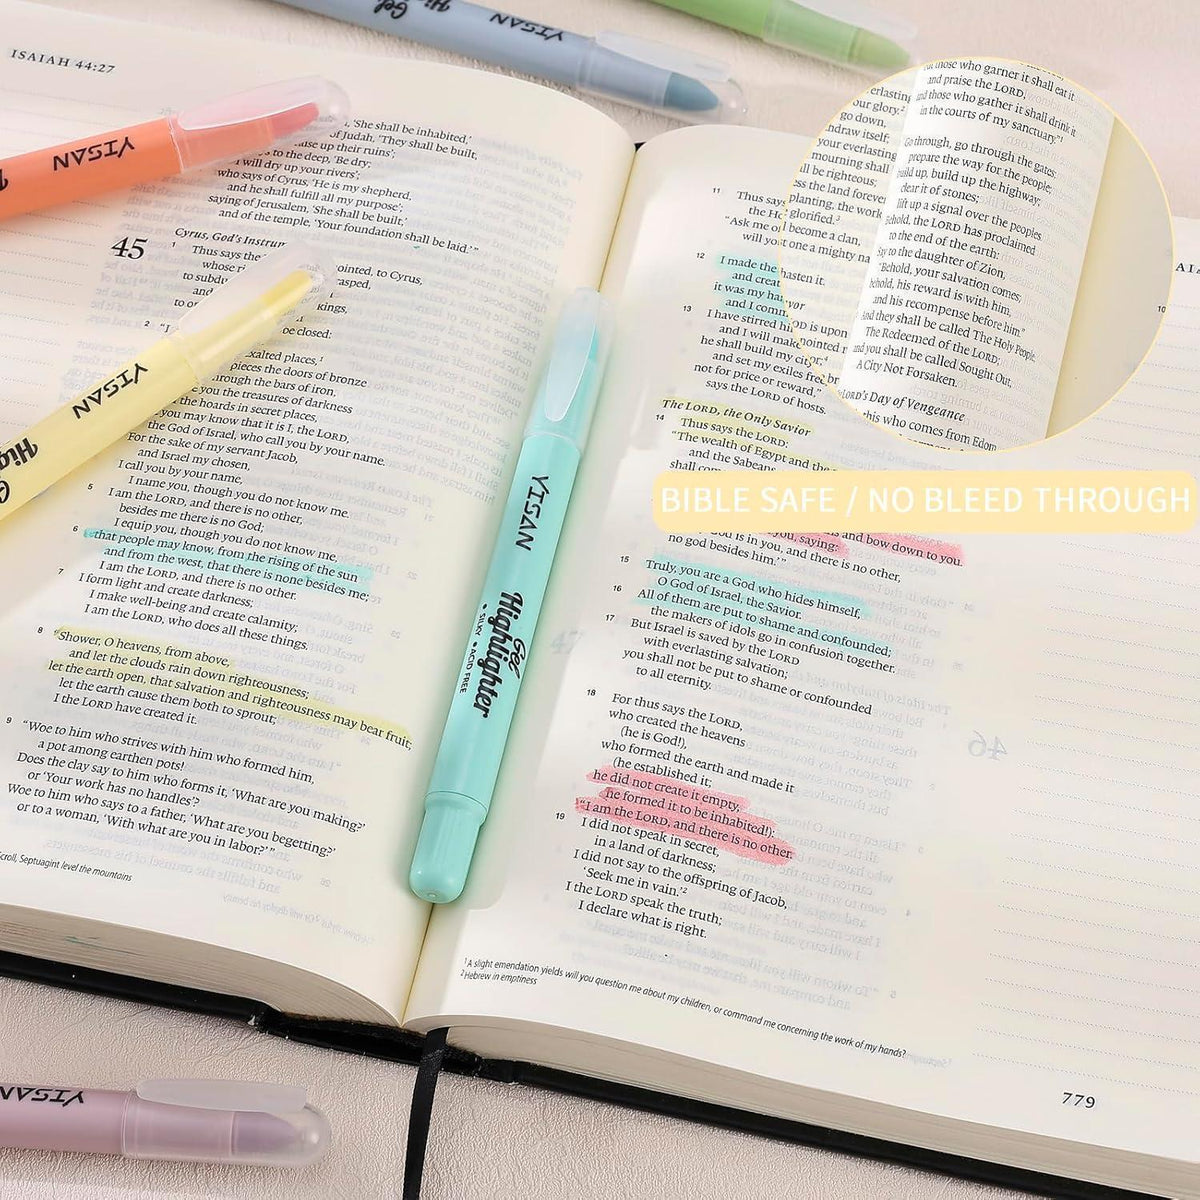 ISAIAH 44:27
'She shall be inhabited,'
of Judah, 'They shall be built,
up their ruins';
to the deep, 'Be dry;
I will dry up your rivers';
who says of Cyrus, 'He is my shepherd,
and he shall fulfill all my purpose';
saying of Jerusalem, 'She shall be built,'
and of the temple, 'Your foundation shall be laid.'"
Cyrus, God's
45
1 Thus says the
to Cyrus,
whose
to
and
to
2
closed:
exalted places,1
pieces the doors of bronze
through the bars of iron,
you the treasures of darkness
the hoards in secret places,
you may know that it is I, the LORD,
the God of Israel, who call you by your name.
For the sake of my servant Jacob,
and Israel my chosen,
I call you by your name,
I name you, though you do not know me.
5 I am the LORD, and there is no other,
besides me there is no God;
I equip you, though you do not know me,
6 that people may know, from the rising of the sun
and from the west, that there is none besides me;
I am the LORD, and there is no other.
7 I form light and create darkness;
I make well-being and create calamity;
I am the LORD, who does all these things.
8 "Shower, O heavens, from above,
and let the clouds rain down righteousness;
let the earth open, that salvation and righteousness may bear fruit;
let the earth cause them both to sprout;
I the LORD have created it.
9 "Woe to him who strives with him who formed him,
a pot among earthen pots!
Does the clay say to him who forms it, 'What are you making?'
or 'Your work has no handles'?
Woe to him who says to a father, 'What are you begetting?'
or to a woman, 'With what are you in labor?'"
Scroll, Septuagint level the mountains
YISAN
YISAN
YISAN
YISAN
YISAN
Gel
Highlighter
SILKY ACID FREE
11 Thus says
the
"Ask me
will you
12 I made the
and
it was my
and I
13 I have stirred him
and I will make
he shall build my city
and set my exiles free
not for price or reward,"
says the LORD of hosts.
The LORD, the Only Savior
14 Thus says the LORD:
"The wealth of Egypt and the
and the Sabeans
shall
and bow down to you.
you, saying:
God is in you, and there is no other,
no god besides him.'"
15 Truly, you are a God who hides himself,
O God of Israel, the Savior.
16 All of them are put to shame and confounded;
the makers of idols go in confusion together.
17 But Israel is saved by the LORD
with everlasting salvation;
you shall not be put to shame or confounded
to all eternity.
18 For thus says the LORD,
who created the heavens
(he is God!),
who formed the earth and made it
(he established it;
he did not create it empty,
he formed it to be inhabited!):
"I am the LORD, and there is no other.
19 I did not speak in secret,
in a land of darkness;
I did not say to the offspring of Jacob,
'Seek me in vain.'2
I the LORD speak the truth;
I declare what is right.
1 A slight emendation yields will you question me about my children, or command me concerning the work of my hands?
2 Hebrew in emptiness
779
those who garner it shall eat it
and praise the LORD,
and those who gather it shall drink it
in the courts of my sanctuary."1
Go through, go through the gates;
prepare the way for the people;
build up, build up the highway;
clear it of stones;
lift up a signal over the peoples
Behold, the LORD has proclaimed
to the end of the earth:
Say to the daughter of Zion,
"Behold, your salvation comes;
behold, his reward is with him,
and his recompense before him."
And they shall be called The Holy People,
The Redeemed of the LORD;
and you shall be called Sought Out,
A City Not Forsaken.
LORD's Day of Vengeance
this who comes from Edom
BIBLE SAFE / NO BLEED THROUGH